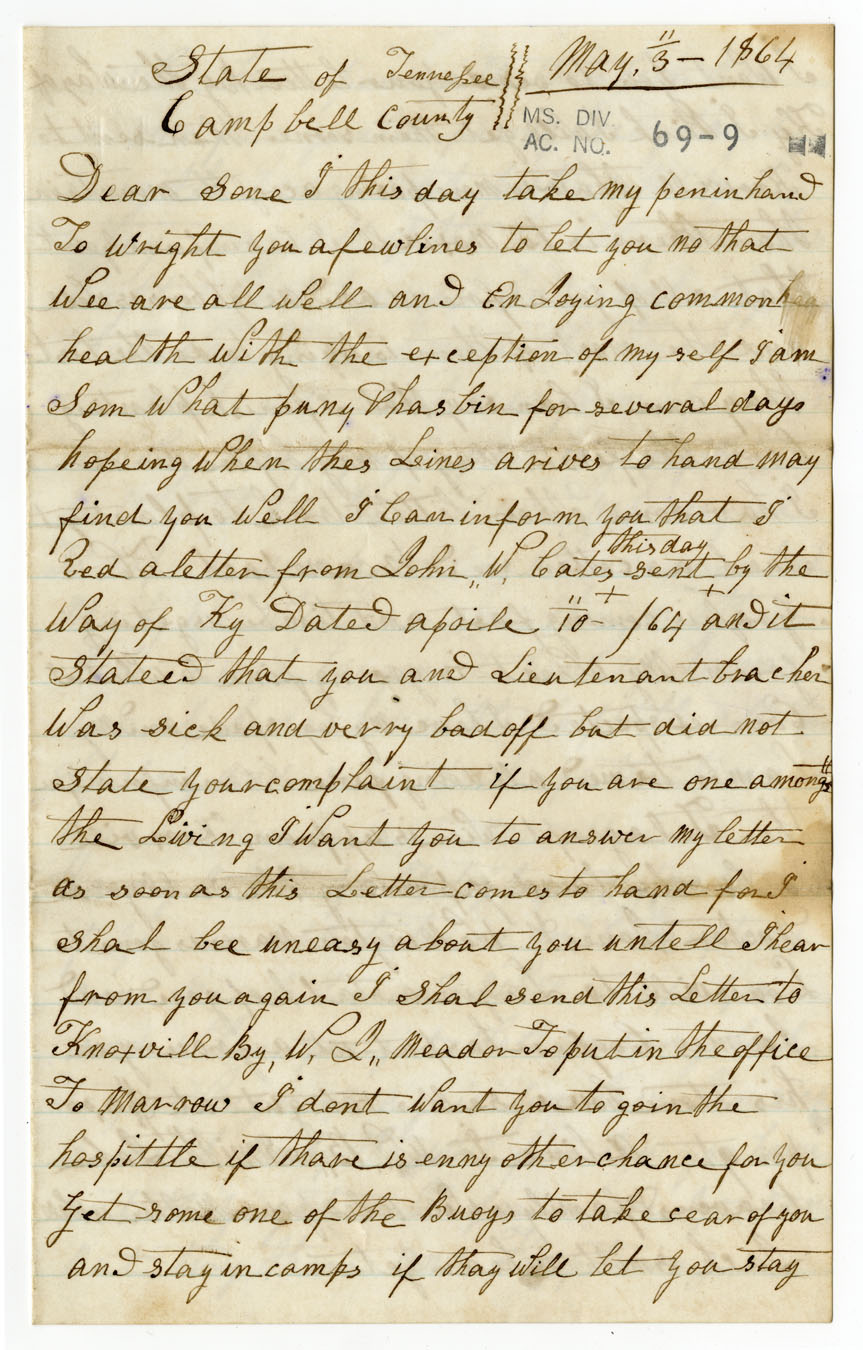 State of Tennessee May, 3 - 1864
Campbell County
MS. DIV
AC. NO. 69-9
Dear Sone I this day take my peninhand
To Wright you afewlines to let you no that
Wee are all Well and EnJoying common
health With the exception of my self I am
Som What puny & has bin for several days
hopeing When thes Leines arives to hand may
find you Well I Can inform you that I
this day
Red a letter from John, W. Cates sent by the
Way of Ky Dated aprile 10 /64 and it
Stateed that you and Lieutenant bracher
Was sick and verry bad off but did not
state your complaint if you are one amongs
the Living I Want you to answer my letter
as soon as this Letter comes to hand for I
shal bee uneasy about you untell I hear
from you again I shal send this Letter to
Knoxvill By, W, J,, Meador To put in the office
To Marrow I dont Want you to go in the
hospittle if thare is enny other chance for you
Get some one of the Buoys to take cear of you
and stay in camps if thay Will let you stay